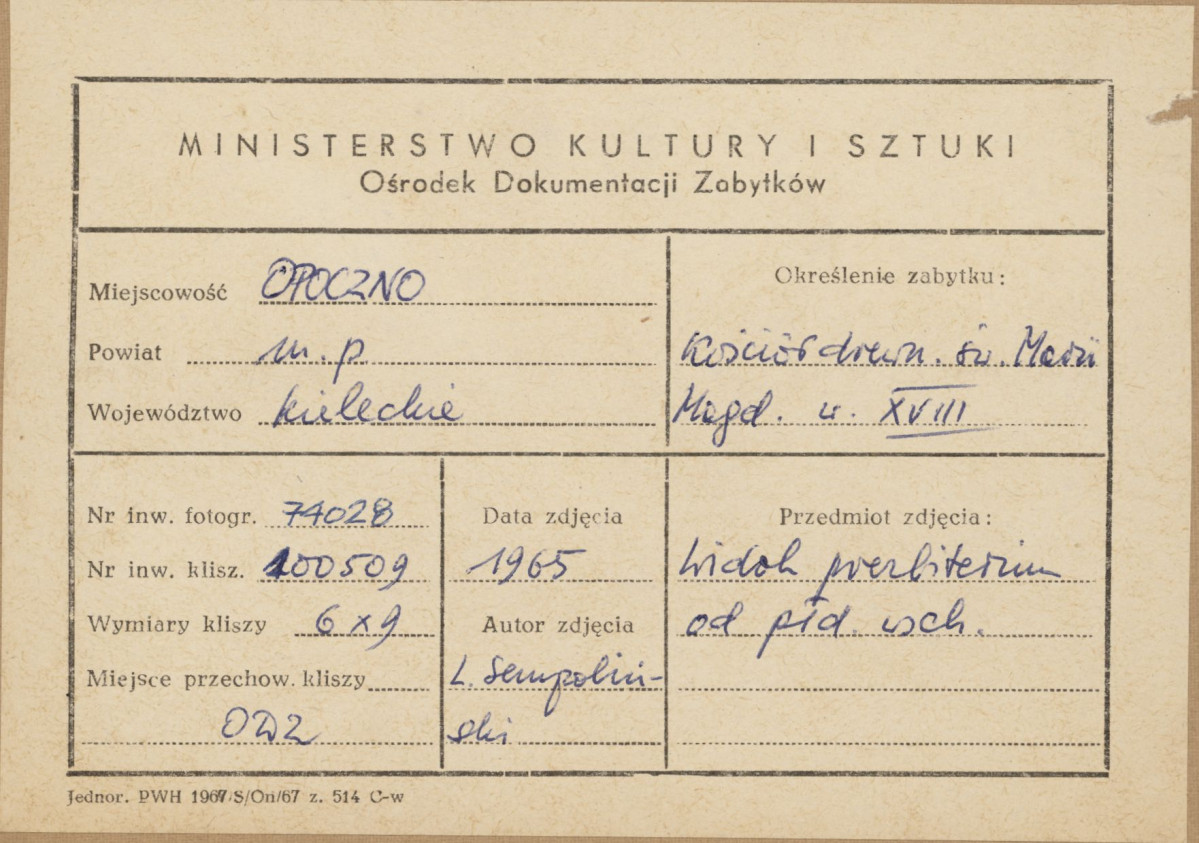 MINISTERSTWO KULTURY I SZTUKI
Ośrodek Dokumentacji Zabytków
Miejscowość OPOCZNO
Powiat m. p
Województwo kieleckie
Określenie zabytku:
Kościół drewn. św. Marii
Magd. w. XVIII
Nr inw. fotogr. 74028
Nr inw. klisz. 100509
Wymiary kliszy 6 x 9
Miejsce przechow. kliszy
ODZ
Data zdjęcia
1965
Autor zdjęcia
L. Sempoliń-
ski
Przedmiot zdjęcia:
Widok prezbiterium
od płd. wsch.
Jednor. PWH 1967/S/On/67 z. 514 C-w